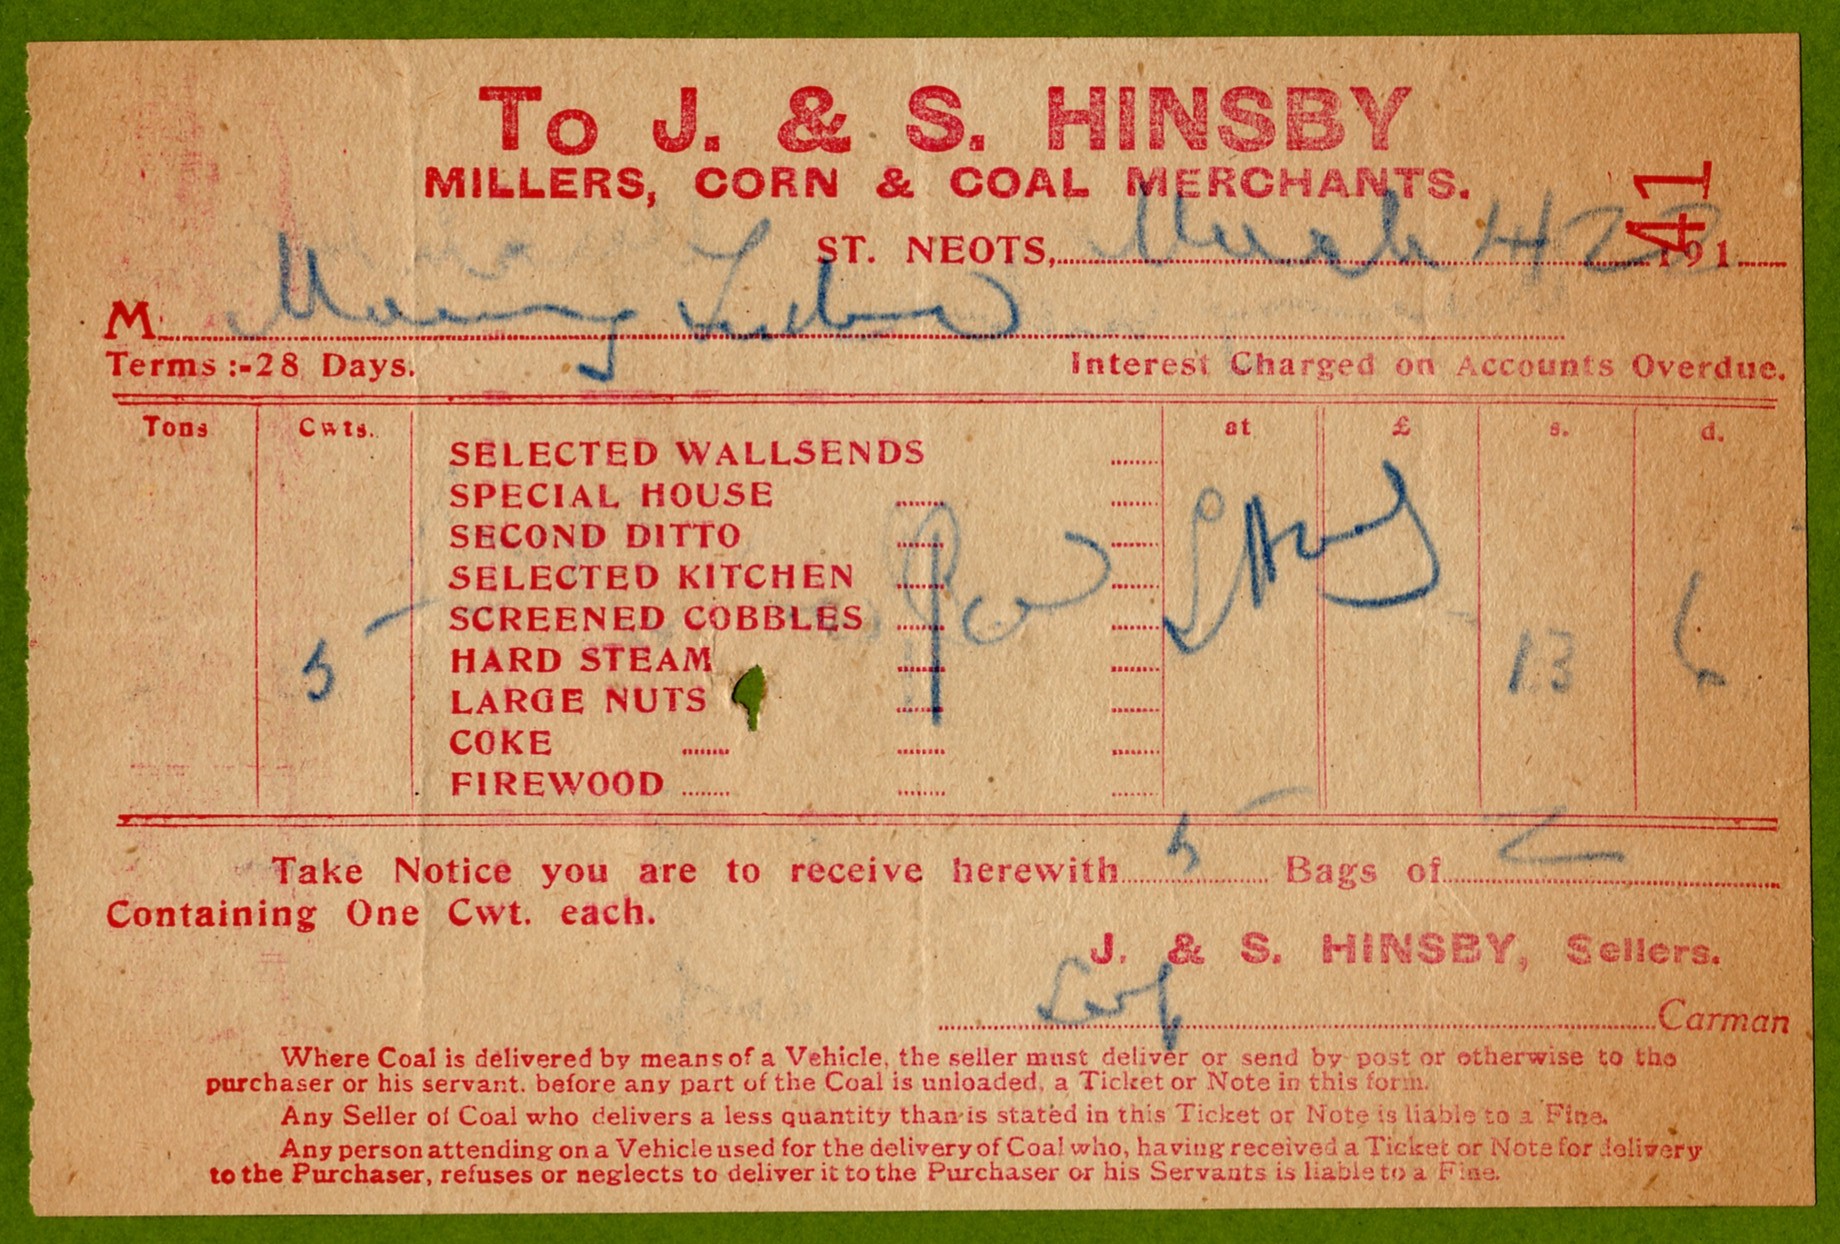 To J. & S. HINSBY
MILLERS, CORN & COAL MERCHANTS.
41
ST. NEOTS, March 4 22 191
M
Terms :-28 Days. Interest Charged on Accounts Overdue.
Tons Cwts. at £ s. d.
SELECTED WALLSENDS
SPECIAL HOUSE
SECOND DITTO
SELECTED KITCHEN
SCREENED COBBLES
HARD STEAM
5 13 6
LARGE NUTS
COKE
FIREWOOD
Take Notice you are to receive herewith 5 Bags of
Containing One Cwt. each.
J. & S. HINSBY, Sellers.
Carman
Where Coal is delivered by means of a Vehicle, the seller must deliver or send by post or otherwise to the
purchaser or his servant. before any part of the Coal is unloaded, a Ticket or Note in this form.
Any Seller of Coal who delivers a less quantity than is stated in this Ticket or Note is liable to a Fine.
Any person attending on a Vehicle used for the delivery of Coal who, having received a Ticket or Note for delivery
to the Purchaser, refuses or neglects to deliver it to the Purchaser or his Servants is liable to a Fine.